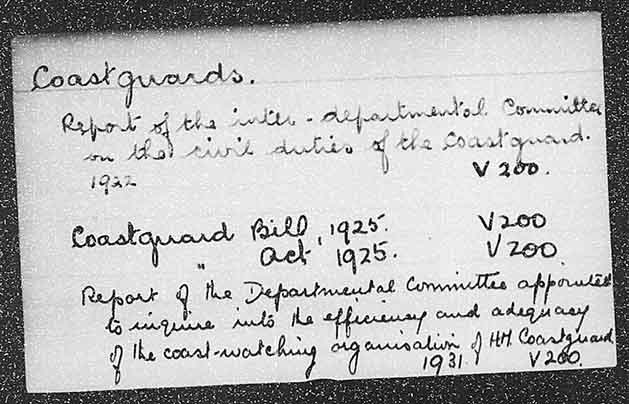 Coastguards.
Report of the inter-departmental Committee
on the civil duties of the Coastguard.
1922 V 200.
Coastguard Bill, 1925. V200
" Act, 1925. V200
Report of the Departmental Committee appointed
to inquire into the efficiency and adequacy
of the coast-watching organisation of HM Coastguard
1931. V200.